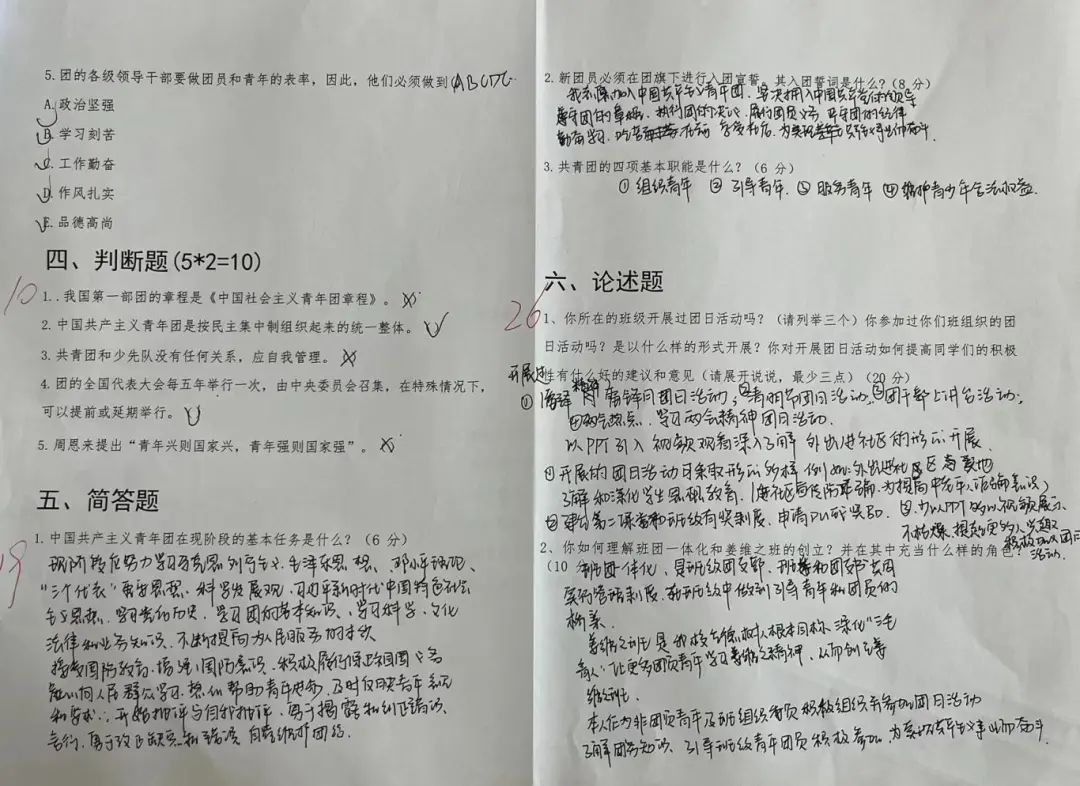 5. 团的各级领导干部要做团员和青年的表率，因此，他们必须做到 ABCDE
A. 政治坚强
B. 学习刻苦
C. 工作勤奋
D. 作风扎实
E. 品德高尚
四、判断题(5*2=10)
10
1. . 我国第一部团的章程是《中国社会主义青年团章程》。 ×
2. 中国共产主义青年团是按民主集中制组织起来的统一整体。 √
3. 共青团和少先队没有任何关系，应自我管理。 ×
4. 团的全国代表大会每五年举行一次，由中央委员会召集，在特殊情况下，
可以提前或延期举行。 √
5. 周恩来提出“青年兴则国家兴，青年强则国家强”。 ×
五、简答题
19
1. 中国共产主义青年团在现阶段的基本任务是什么？（6 分）
列宁主义、毛泽东思想、邓小平理论、
“三个代表”重要思想、科学发展观、习近平新时代中国特色社会
主义思想，学习党的历史，学习团的基本知识，学习科学、文化
法律和业务知识，不断提高为人民服务的本领
接受国防教育，增强国防意识，积极履行保卫祖国
向人民群众学习，热心帮助青年进步，及时反映青年
和要求，开展批评与自我批评，勇于揭露和纠正错误
言行，勇于改正缺点和错误，自觉维护团结
2. 新团员必须在团旗下进行入团宣誓，其入团誓词是什么？（8 分）
我志愿加入中国共产主义青年团，坚决拥护中国共产党的领导
遵守团的章程，执行团的决议，履行团员义务，严守团的纪律
勤奋学习，吃苦在前，享受在后，为共产主义事业而奋斗.
3. 共青团的四项基本职能是什么？（6 分）
① 组织青年 ② 引导青年. ③ 服务青年 ④ 维护青少年合法权益.
六、论述题
26
1、你所在的班级开展过团日活动吗？（请列举三个）你参加过你们班组织的团
日活动吗？是以什么样的形式开展？你对开展团日活动如何提高同学们的积极
性有什么好的建议和意见（请展开说说，最少三点）（20 分）
开展过
① 雷锋月团日活动，②清明节团日活动，③团干部上讲台活动，
④两会热点，学习两会精神团日活动.
以PPT引入 视频观看深入了解 外出进社区的形式开展
①开展的团日活动可采取形式多样 例如：外出进社区
了解和深化学生思想教育.
②建立第二课堂和班级有奖制度、申请PU或奖励. ③少以PPT 多以视频展示、
不枯燥，提起更多的人兴趣
积极加入团日
活动.
2、你如何理解班团一体化和姜维之班的创立？并在其中充当什么样的角色？
（10
班团一体化，是班级团支部，班委和团支书共同
实行管理制度. 在班级中做到引导青年和团员的
姜维之班是我校立德树人根本目标，深化“三全
育人”让更多团员青年学习姜维之精神，从而创立姜
维之班.
本人作为非团员青年及班组织委员积极组织并参加团日活动
了解团务知识、引导班级青年团员积极参加，为实现共产主义事业而奋斗.